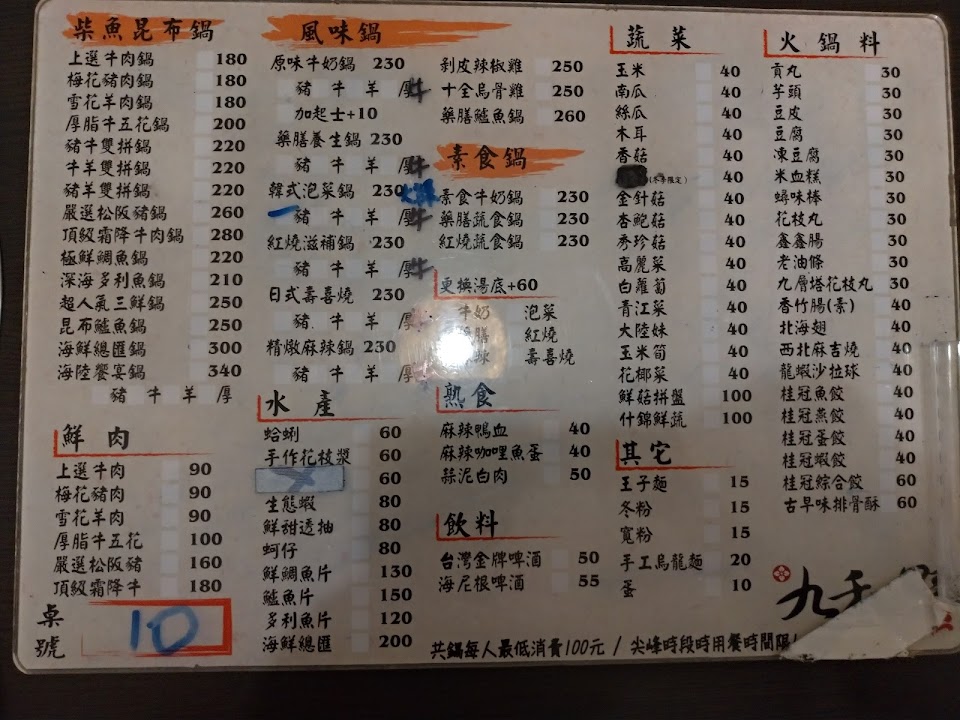 柴魚昆布鍋
上選牛肉鍋 180
梅花豬肉鍋 180
雪花羊肉鍋 180
厚脂牛五花鍋 200
豬牛雙拼鍋 220
牛羊雙拼鍋 220
豬羊雙拼鍋 220
嚴選松阪豬鍋 260
頂級霜降牛肉鍋 280
極鮮鯛魚鍋 220
深海多利魚鍋 210
超人氣三鮮鍋 250
昆布鱸魚鍋 250
海鮮總匯鍋 300
海陸饗宴鍋 340
豬 牛 羊 厚
鮮肉
上選牛肉 90
梅花豬肉 90
雪花羊肉 90
厚脂牛五花 100
嚴選松阪豬 160
頂級霜降牛 180
桌號 10
風味鍋
原味牛奶鍋 230
豬 牛 羊 厚牛
加起士+10
藥膳養生鍋 230
豬 牛 羊 厚牛
韓式泡菜鍋 230
豬 牛 羊 厚牛
紅燒滋補鍋 230
豬 牛 羊 厚牛
日式壽喜燒 230
豬 牛 羊 厚
精燉麻辣鍋 230
豬 牛 羊 厚
剝皮辣椒雞 250
十全烏骨雞 250
藥膳鱸魚鍋 260
素食鍋
素食牛奶鍋 230
藥膳蔬食鍋 230
紅燒蔬食鍋 230
更換湯底+60
牛奶 泡菜
膳 紅燒
辣 壽喜燒
水產
蛤蜊 60
手作花枝漿 60
60
生態蝦 80
鮮甜透抽 80
蚵仔 80
鮮鯛魚片 130
鱸魚片 150
多利魚片 120
海鮮總匯 200
熟食
麻辣鴨血 40
麻辣咖哩魚蛋 40
蒜泥白肉 50
飲料
台灣金牌啤酒 50
海尼根啤酒 55
蔬菜
玉米 40
南瓜 40
絲瓜 40
木耳 40
香菇 40
(冬季限定) 40
金針菇 40
杏鮑菇 40
秀珍菇 40
高麗菜 40
白蘿蔔 40
青江菜 40
大陸妹 40
玉米筍 40
花椰菜 40
鮮菇拼盤 100
什錦鮮蔬 100
其它
王子麵 15
冬粉 15
寬粉 15
手工烏龍麵 20
蛋 10
火鍋料
貢丸 30
芋頭 30
豆皮 30
豆腐 30
凍豆腐 30
米血糕 30
蟳味棒 30
花枝丸 30
鑫鑫腸 30
老油條 30
九層塔花枝丸 30
香竹腸(素) 40
北海翅 40
西北麻吉燒 40
龍蝦沙拉球 40
桂冠魚餃 40
桂冠燕餃 40
桂冠蛋餃 40
桂冠蝦餃 40
桂冠綜合餃 60
古早味排骨酥 60
九千
共鍋每人最低消費100元 / 尖峰時段時用餐時間限